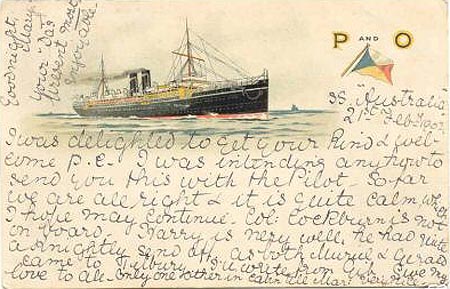 Goodnight
Mary.
your "Das"
P AND O
SS. "Australia"
21st Feb. 1902
I was delighted to get your kind & wel-
come P.C. I was intending anyhow to
send you this with the Pilot. So far
we are all right & it is quite calm wh
I hope may continue. Col: Cockburn is not
on board. Harry is very well. he had quite
a Knightly send off, as both Muriel & Gerald
came to Tilbury. I'll write from Gib. Give my
love to all. Only one other in cabin